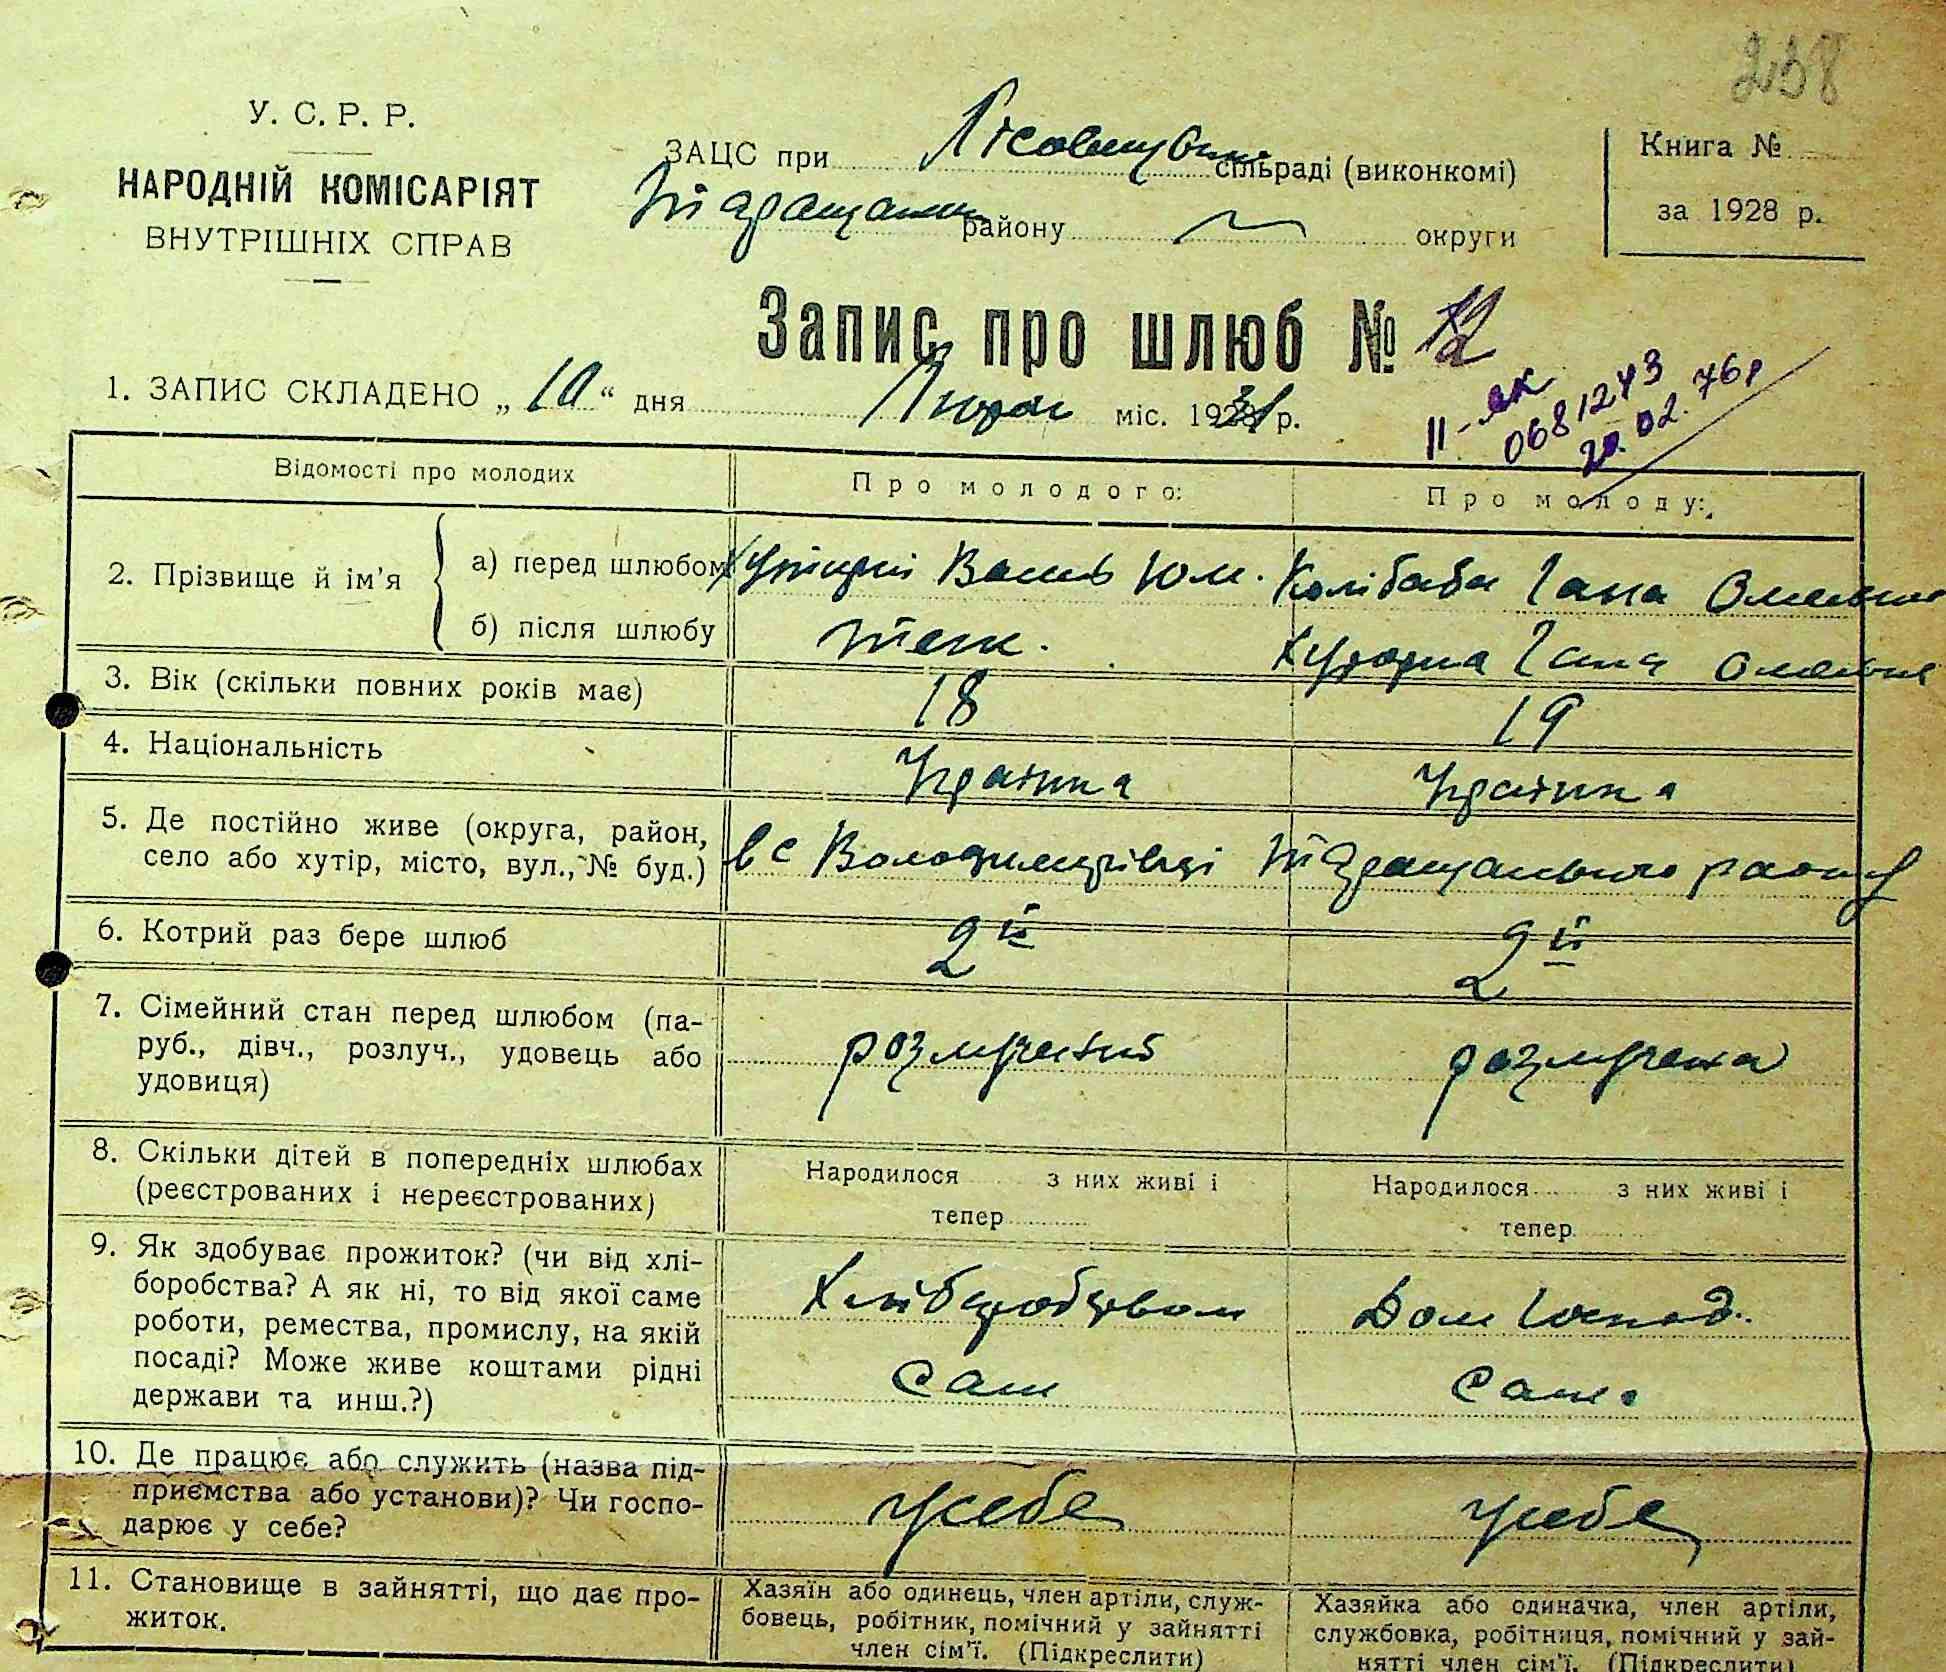 238
У. С. Р. Р.
НАРОДНІЙ КОМІСАРІЯТ
ВНУТРІШНІХ СПРАВ
ЗАЦС при сільраді (виконкомі)
району округи
Книга №
за 1928 р.
Запис про шлюб № 12
1. ЗАПИС СКЛАДЕНО „10“ дня міс. 1931 р.
11-ЕК
0681243
20.02.76р
Відомості про молодих
Про молодого:
Про молоду:
2. Прізвище й ім’я
а) перед шлюбом
Колібаба Гана
б) після шлюбу
Гана
3. Вік (скільки повних років має) 18 19
4. Національність Українка Українка
5. Де постійно живе (округа, район,
село або хутір, місто, вул., № буд.) в с Володимирівці
6. Котрий раз бере шлюб 2й 2й
7. Сімейний стан перед шлюбом (па-
руб., дівч., розлуч., удовець або
удовиця)
розлучений розлучена
8. Скільки дітей в попередніх шлюбах
(реєстрованих і нереєстрованих)
Народилося з них живі і
тепер
Народилося з них живі і
тепер
9. Як здобуває прожиток? (чи від хлі-
боробства? А як ні, то від якої саме
роботи, ремества, промислу, на якій
посаді? Може живе коштами рідні
держави та инш.?)
Хліборобством
сам
Дом Господ.
сама
10. Де працює або служить (назва під-
приємства або установи)? Чи госпо-
дарює у себе?
усебе усебе
11. Становище в зайнятті, що дає про-
житок.
Хазяїн або одинець, член артіли, служ-
бовець, робітник, помічний у зайнятті
член сім’ї. (Підкреслити)
Хазяйка або одиначка, член артіли,
службовка, робітниця, помічний у зай-
нятті член сім’ї. (Підкреслити)